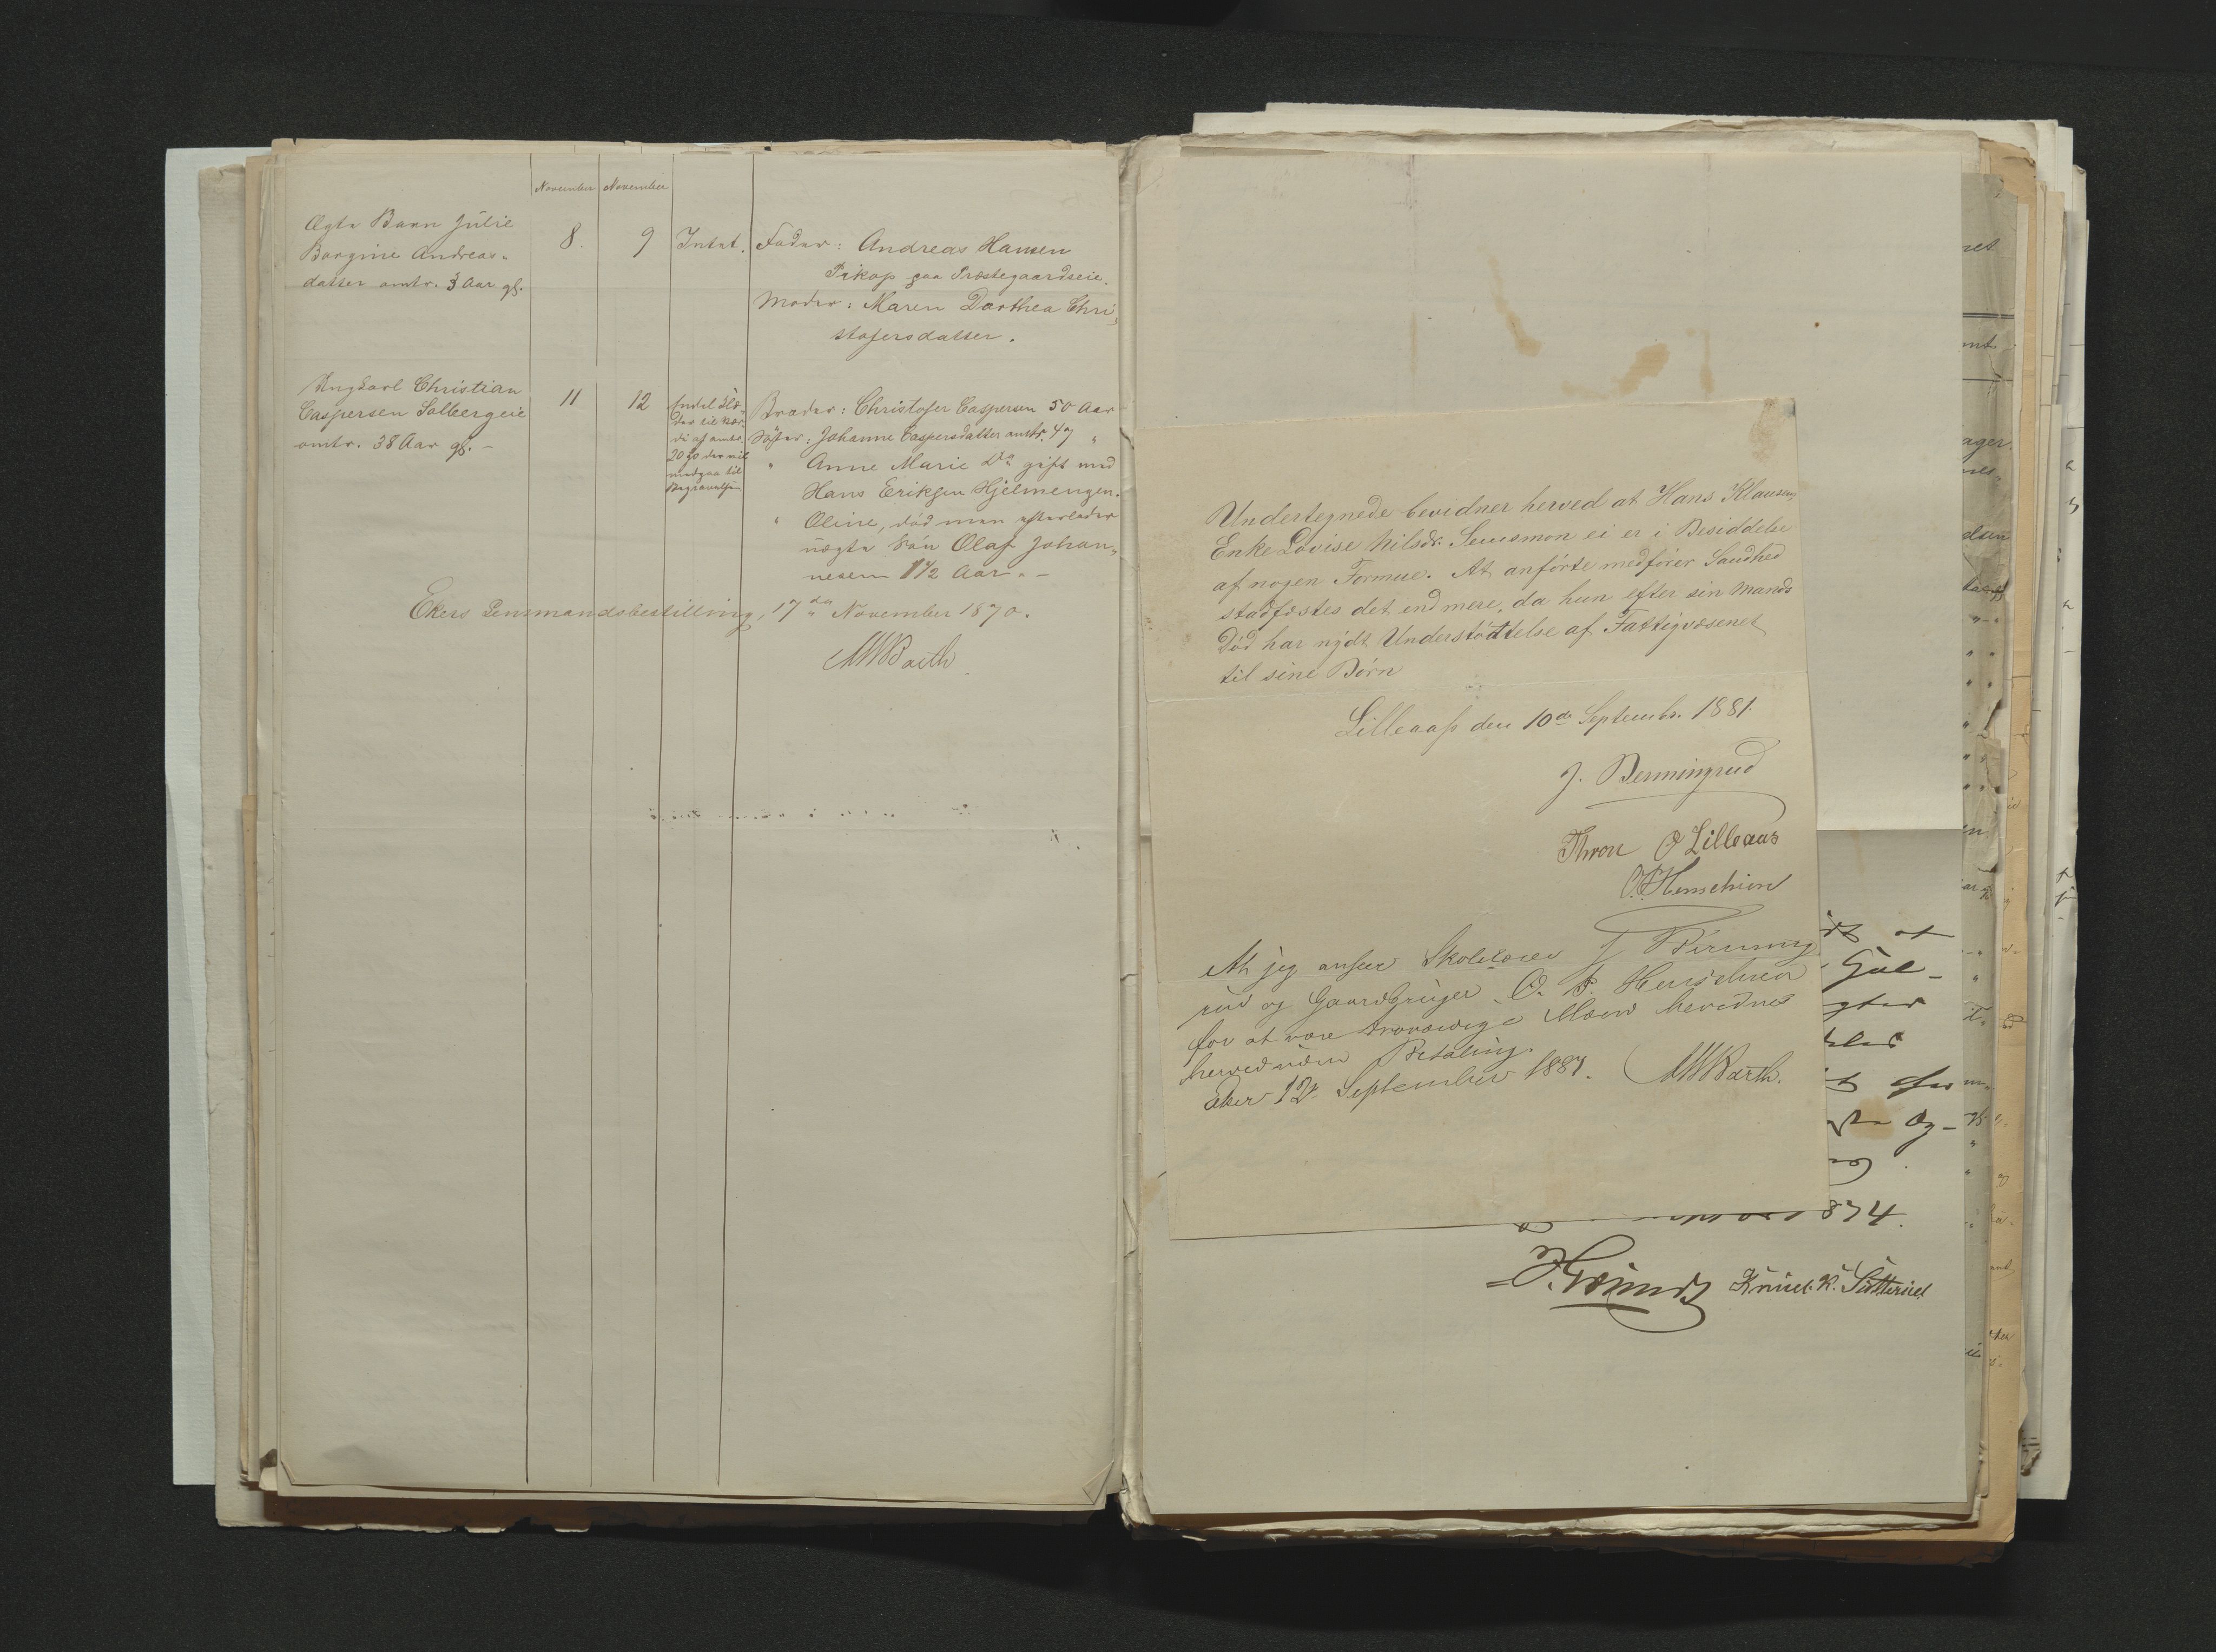 November November
Ægte Barn Julie
Borgine Andreas-
datter omtr. 3 Aar gl.
8.
9
Intet.
Fader: Andreas Hansen
Pikop paa Præstegaardseie.
Moder: Maren Dorthea Chri-
stofersdatter.
Ungkarl Christian
Caspersen Solbergeie
omtr. 38 Aar gl. -
11
12
Endel Klæ-
der til Vær-
di af omtr.
20 ß der vil
medgaa til
Begravelsen
Broder: Christofer Caspersen 50 Aar
Søster: Johanne Caspersdatter omtr. 47 "
" Anne Marie Do gift med
Hans Eriksen Hjelmengen.
" Oline, død men efterlader
uægte Søn Olaf Johan-
nesen 1 1/2 Aar. -
Ekers Lensmandsbestilling, 17de November 1870.
MWBarth
Undertegnede bevidner herved at Hans Klausens
Enke Lovise Nilsdr. Semsmoen ei er i Besiddelse
af nogen Formue. At anførte medfører Sandhed
stadfæstes det end mere, da hun efter sin Mands
Død har nydt Understøttelse af Fattigvæsenet
til sine Børn
Lilleaas den 10de Septembr. 1881.
J. Bermingrud
Thron O Lilleaas
O.P. Henschien
At jeg anseer Skolelærer J Birming
rud og Gaardbruger O. P. Henschien
for at være troværdige Mænd bevidnes
herved uden Betaling.
Eker 12te September 1881. MWBarth.
dt at
Gul-
gter
for
Og-
1874.
Knud. K. Sætterud